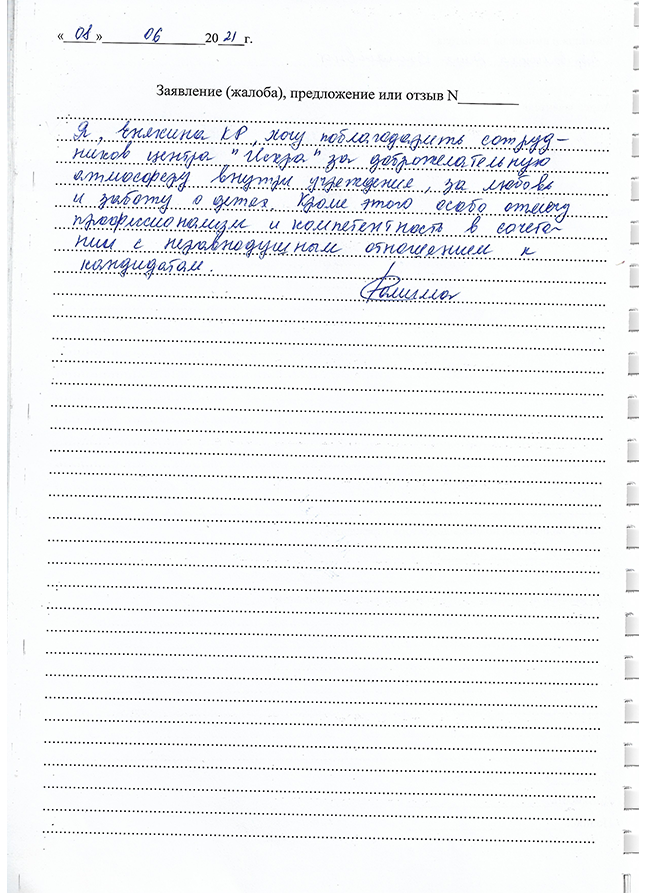 « 08 » 06 2021 г.
Заявление (жалоба), предложение или отзыв N________
Я, Енякина КР, могу поблагодарить сотруд-
ников центра "Искра" за доброжелательную
атмосферу внутри учреждение, за любовь
и заботу о детях. Кроме этого особо отмечу
профессионализм и компетентность в сочета-
нии с неравнодушным отношением к
кандидатам.